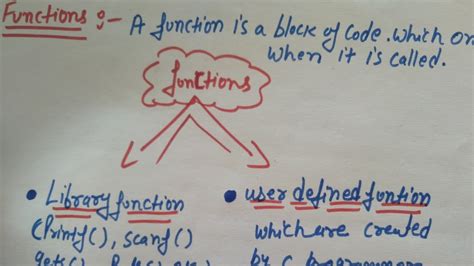 Functions :- A function is a block of code. which
when it is called.
functions
• Library function
(Printf(), scanf()
• user defined funtion
which are created
by C